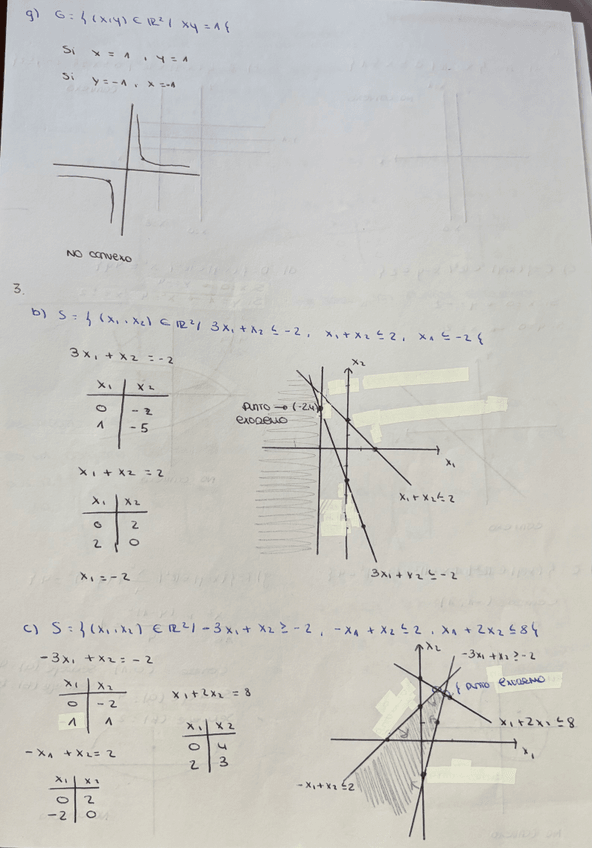 g) G = { (x,y) ⊂ ℝ² / xy = 1 {
Si x = 1 , y = 1
Si y = -1 , x = -1
NO convexo
3.
b) S = { (x₁, x₂) ⊂ ℝ² / 3x₁ + x₂ ≤ -2 , x₁ + x₂ ≤ 2 , x₁ ≤ -2 {
3x₁ + x₂ = -2
x₁ x₂
0 -2
1 -5
x₂
PUNTO → (-2,4)
extremo
x₁
x₁ + x₂ ≤ 2
3x₁ + x₂ ≤ -2
x₁ + x₂ = 2
x₁ x₂
0 2
2 0
x₁ = -2
c) S = { (x₁, x₂) ∈ ℝ² / -3x₁ + x₂ ≥ -2 , -x₁ + x₂ ≤ 2 , x₁ + 2x₂ ≤ 8 {
-3x₁ + x₂ = -2
x₁ x₂
0 -2
1 1
x₁ + 2x₂ = 8
x₁ x₂
0 4
2 3
-x₁ + x₂ = 2
x₁ x₂
0 2
-2 0
x₂
-3x₁ + x₂ ≥ -2
{ punto extremo
x₁ + 2x₂ ≤ 8
x₁
-x₁ + x₂ ≤ 2